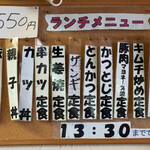 550円
ランチメニュー
キムチ炒め定食
豚肉
かつとじ定食
とんかつ定食
ザンギ定食
生姜焼定食
串カツ定食
カツ丼
親子丼
13:30まで